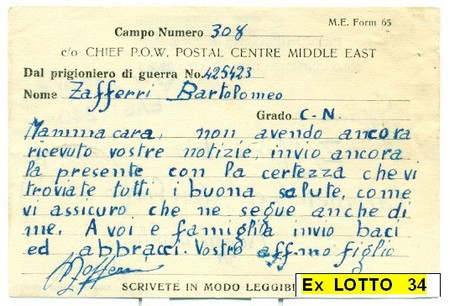 M.E. Form 65
Campo Numero 308
c/o CHIEF P.O.W. POSTAL CENTRE MIDDLE EAST
Dal prigioniero di guerra No. 425423
Nome Zafferri Bartolomeo
Grado C.N.
Mamma cara, non avendo ancora
ricevuto vostre notizie, invio ancora
la presente con la certezza che vi
troviate tutti i buona salute, come
vi assicuro che ne segue anche di
me. A voi e famiglia invio baci
ed abbracci. Vostro affmo figlio
SCRIVETE IN MODO LEGGIBI
Ex LOTTO 34